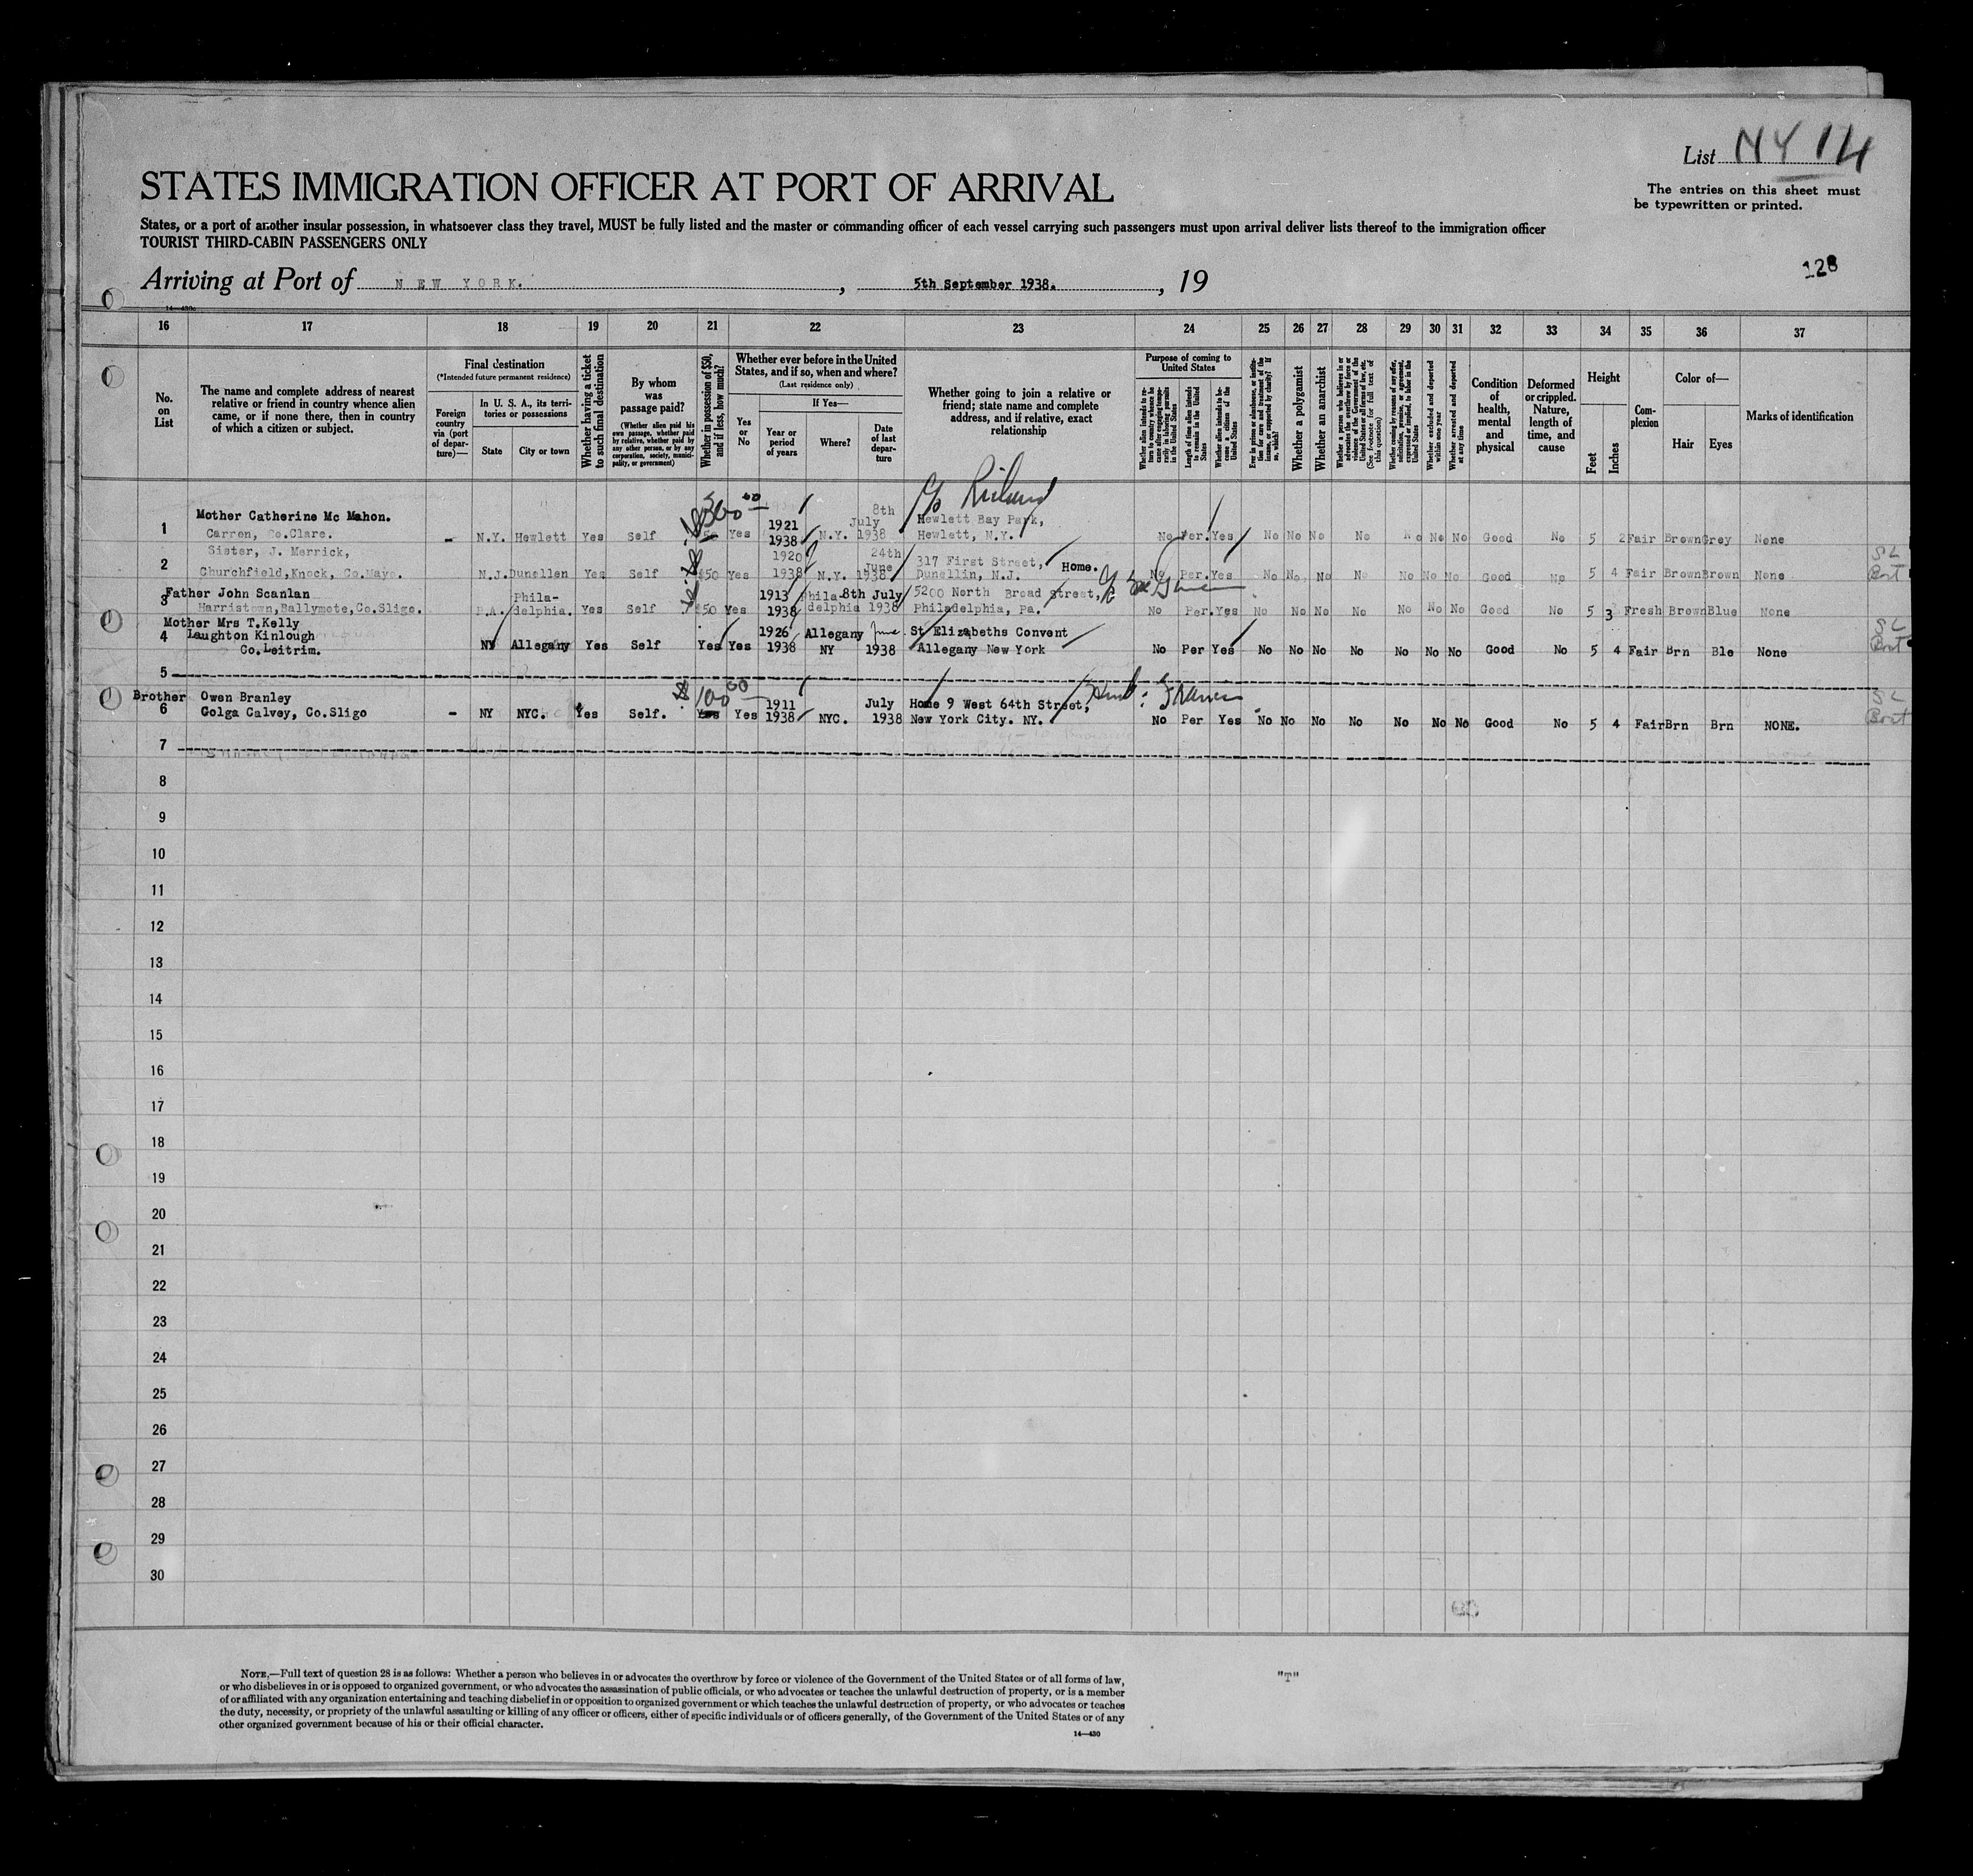 List NY 14
STATES IMMIGRATION OFFICER AT PORT OF ARRIVAL
The entries on this sheet must
be typewritten or printed.
States, or a port of another insular possession, in whatsoever class they travel, MUST be fully listed and the master or commanding officer of each vessel carrying such passengers must upon arrival deliver lists thereof to the immigration officer
TOURIST THIRD-CABIN PASSENGERS ONLY
128
Arriving at Port of NEW YORK. , 5th September 1938. , 19
14—430c
16 17 18 19 20 21 22 23 24 25 26 27 28 29 30 31 32 33 34 35 36 37
No.
on
List
The name and complete address of nearest
relative or friend in country whence alien
came, or if none there, then in country
of which a citizen or subject.
Final destination
(*Intended future permanent residence)
Foreign
country
via (port
of depar-
ture)—
In U. S. A., its terri-
tories or possessions
State City or town
Whether having a ticket
to such final destination
By whom
was
passage paid?
(Whether alien paid his
own passage, whether paid
by relative, whether paid by
any other person, or by any
corporation, society, munici-
pality, or government)
Whether in possession of $50,
and if less, how much?
Whether ever before in the United
States, and if so, when and where?
(Last residence only)
Yes
or
No
If Yes—
Year or
period
of years
Where?
Date
of last
depar-
ture
Whether going to join a relative or
friend; state name and complete
address, and if relative, exact
relationship
Purpose of coming to
United States
Whether alien intends to re-
turn to country whence he
came after engaging tempo-
rarily in laboring pursuits
in the United States
Length of time alien intends
to remain in the United
States
Whether alien intends to be-
come a citizen of the
United States
Ever in prison or almshouse, or institu-
tion for care and treatment of the
insane, or supported by charity? If
so, which?
Whether a polygamist
Whether an anarchist
Whether a person who believes in or
advocates the overthrow by force or
violence of the Government of the
United States or all forms of law, etc.
(See footnote for full text of
this question)
Whether coming by reasons of any offer,
solicitation, promise, or agreement,
expressed or implied, to labor in the
United States
Whether excluded and deported
within one year
Whether arrested and deported
at any time
Condition
of
health,
mental
and
physical
Deformed
or crippled.
Nature,
length of
time, and
cause
Height
Feet Inches
Com-
plexion
Color of—
Hair Eyes
Marks of identification
℅ Richard
300 00 8th
Mother Catherine Mc Mahon. 1921 July Hewlett Bay Park,
1 Carron, Co.Clare. - N.Y. Hewlett Yes Self 50 Yes 1938 N.Y. 1938 Hewlett, N.Y. No Per. Yes No No No No No No No Good No 5 2 Fair Brown Grey None
Sister, J. Merrick, 1920 24th June 317 First Street, Home. SL
2 Churchfield,Knock, Co.Mayo. N.J. Dunellen Yes Self $50 Yes 1938 N.Y. 1938 Dunellin, N.J. No Per. Yes No No No No No No No Good No 5 4 Fair Brown Brown None
Father John Scanlan Phila- 1913 Phila- 8th July 5200 North Broad Street,
3 Harristown,Ballymote,Co.Sligo. P.A. delphia. Yes Self $50 Yes 1938 delphia 1938 Philadelphia, Pa. No Per. Yes No No No No No No No Good No 5 3 Fresh Brown Blue None
Mother Mrs T.Kelly SL
4 Laughton Kinlough 1926 Allegany June St Elizabeths Convent
Co.Leitrim. NY Allegany Yes Self Yes Yes 1938 NY 1938 Allegany New York No Per Yes No No No No No No No Good No 5 4 Fair Brn Ble None
5
$100 00
Brother Owen Branley 1911 July Home 9 West 64th Street, SL
6 Golga Calvey, Co.Sligo - NY NYC. Yes Self. Yes Yes 1938 NYC. 1938 New York City. NY. No Per Yes No No No No No No No Good No 5 4 Fair Brn Brn NONE.
7
8
9
10
11
12
13
14
15
16
17
18
19
20
21
22
23
24
25
26
27
28
29
30
NOTE.—Full text of question 28 is as follows: Whether a person who believes in or advocates the overthrow by force or violence of the Government of the United States or of all forms of law,
or who disbelieves in or is opposed to organized government, or who advocates the assassination of public officials, or who advocates or teaches the unlawful destruction of property, or is a member
of or affiliated with any organization entertaining and teaching disbelief in or opposition to organized government or which teaches the unlawful destruction of property, or who advocates or teaches
the duty, necessity, or propriety of the unlawful assaulting or killing of any officer or officers, either of specific individuals or of officers generally, of the Government of the United States or of any
other organized government because of his or their official character.
14—430
"T"